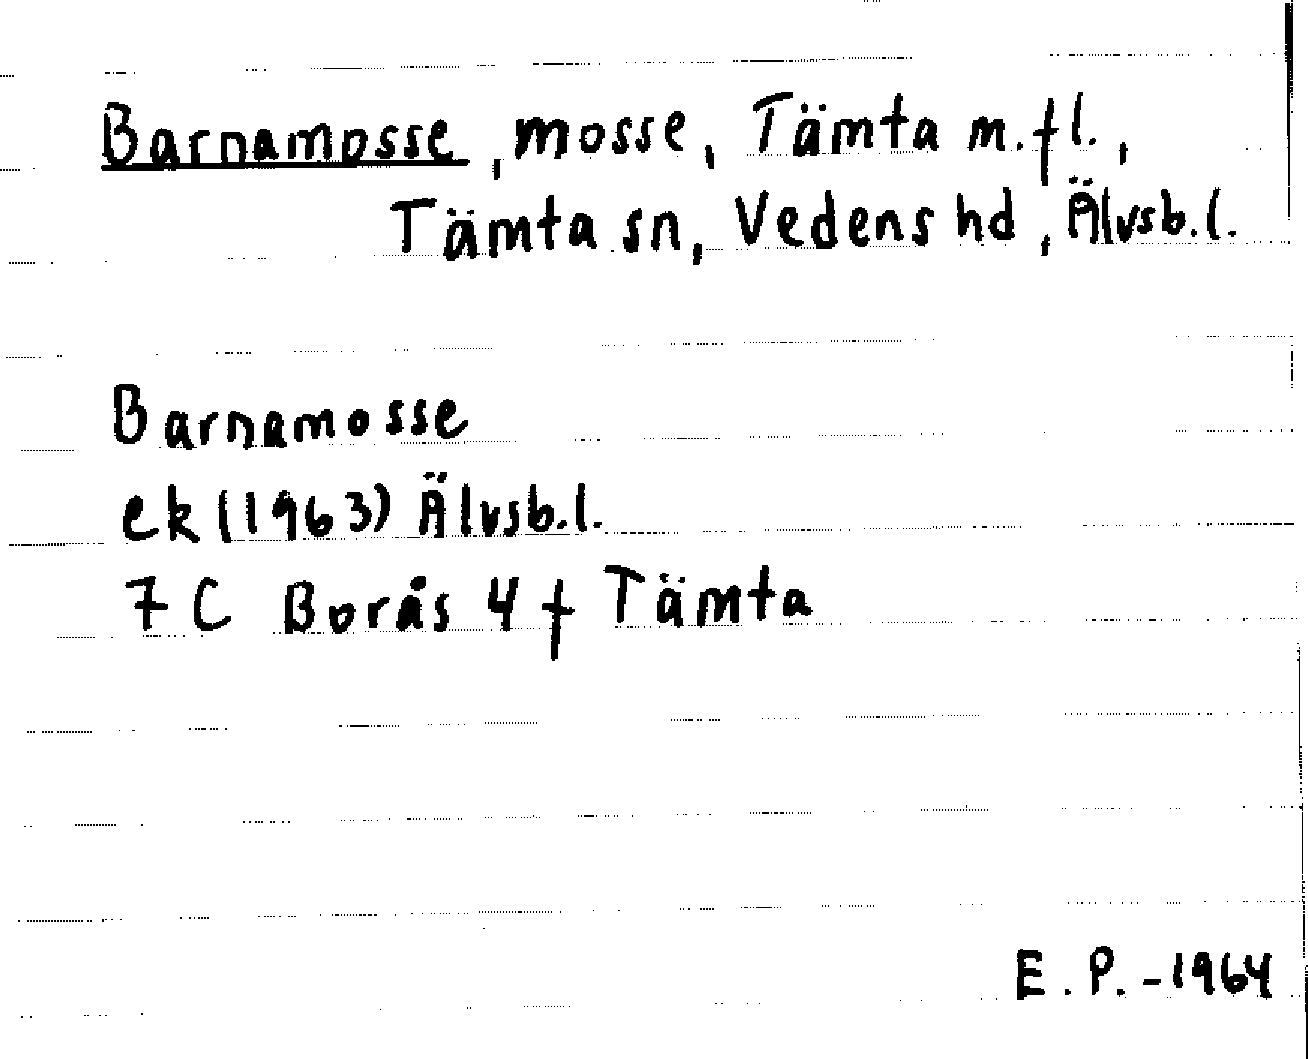 Barnamosse, mosse, Tämta m.fl.,
Tämta sn, Vedens hd, Älvsb.l.
Barnamosse
ek (1963) Älvsb.l.
7 C Borås 4 f Tämta
E.P.-1964